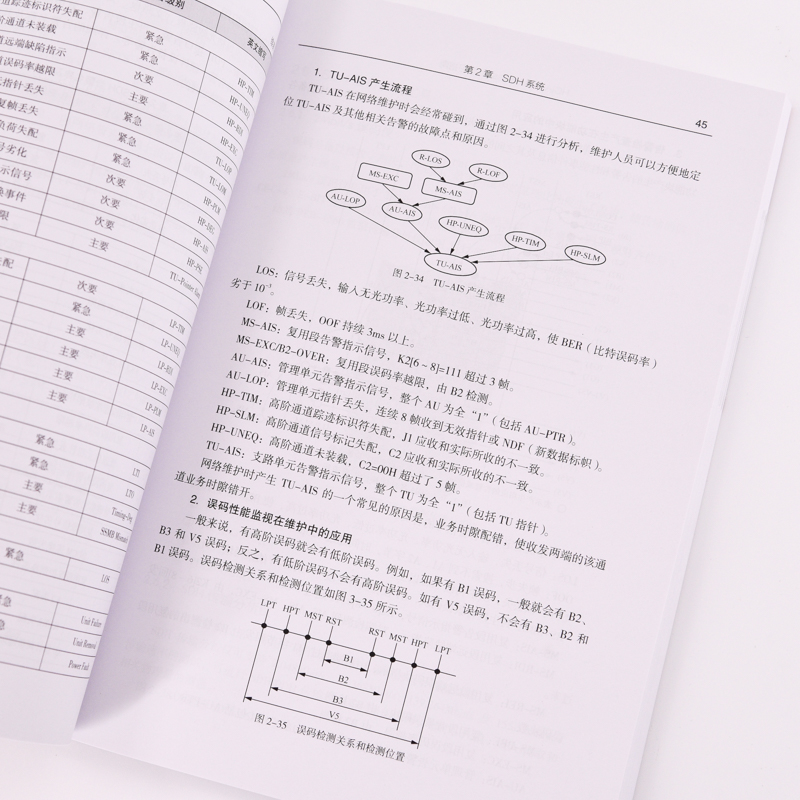 踪迹标识符失配
通道未装载
远端缺陷指示
误码率越限
指针丢失
复帧丢失
负荷失配
号劣化
示信号
换事件
限
级别
紧急
紧急
次要
主要
紧急
紧急
紧急
次要
次要
次要
主要
HP-TIM
HP-UNEQ
HP-RDI
HP-EXC
TU-LOP
TU-LOM
HP-PLM
HP-DEG
HP-AIS
HP-PSE
失配
次要
紧急
主要
主要
主要
主要
LP-TIM
LP-UNEQ
LP-RDI
LP-EXC
LP-PLM
LP-AIS
紧急
紧急
主要
主要
LTI
LTO
紧急
LOS
紧急
急
Unit Failure
Unit Removal
Power Fail
第2章 SDH系统
45
1. TU-AIS 产生流程
TU-AIS 在网络维护时会经常碰到，通过图 2-34 进行分析，维护人员可以方便地定
位 TU-AIS 及其他相关告警的故障点和原因。
R-LOS
R-LOF
MS-EXC
MS-AIS
AU-LOP
AU-AIS
HP-UNEQ
HP-TIM
HP-SLM
TU-AIS
图 2-34 TU-AIS 产生流程
LOS：信号丢失，输入无光功率、光功率过低、光功率过高，使 BER（比特误码率）
劣于 10⁻³。
LOF：帧丢失，OOF 持续 3ms 以上。
MS-AIS：复用段告警指示信号，K2[6～8]=111 超过 3 帧。
MS-EXC/B2-OVER：复用段误码率越限，由 B2 检测。
AU-AIS：管理单元告警指示信号，整个 AU 为全“1”（包括 AU-PTR）。
AU-LOP：管理单元指针丢失，连续 8 帧收到无效指针或 NDF（新数据标帜）。
HP-TIM：高阶通道踪迹标识符失配，J1 应收和实际所收的不一致。
HP-SLM：高阶通道信号标记失配，C2 应收和实际所收的不一致。
HP-UNEQ：高阶通道未装载，C2=00H 超过了 5 帧。
TU-AIS：支路单元告警指示信号，整个 TU 为全“1”（包括 TU 指针）。
网络维护时产生 TU-AIS 的一个常见的原因是，业务时隙配错，使收发两端的该通
道业务时隙错开。
2. 误码性能监视在维护中的应用
一般来说，有高阶误码就会有低阶误码。例如，如果有 B1 误码，一般就会有 B2、
B3 和 V5 误码；反之，有低阶误码不会有高阶误码。如有 V5 误码，不会有 B3、B2 和
B1 误码。误码检测关系和检测位置如图 3-35 所示。
LPT HPT MST RST RST MST HPT LPT
B1
B2
B3
V5
图 2-35 误码检测关系和检测位置